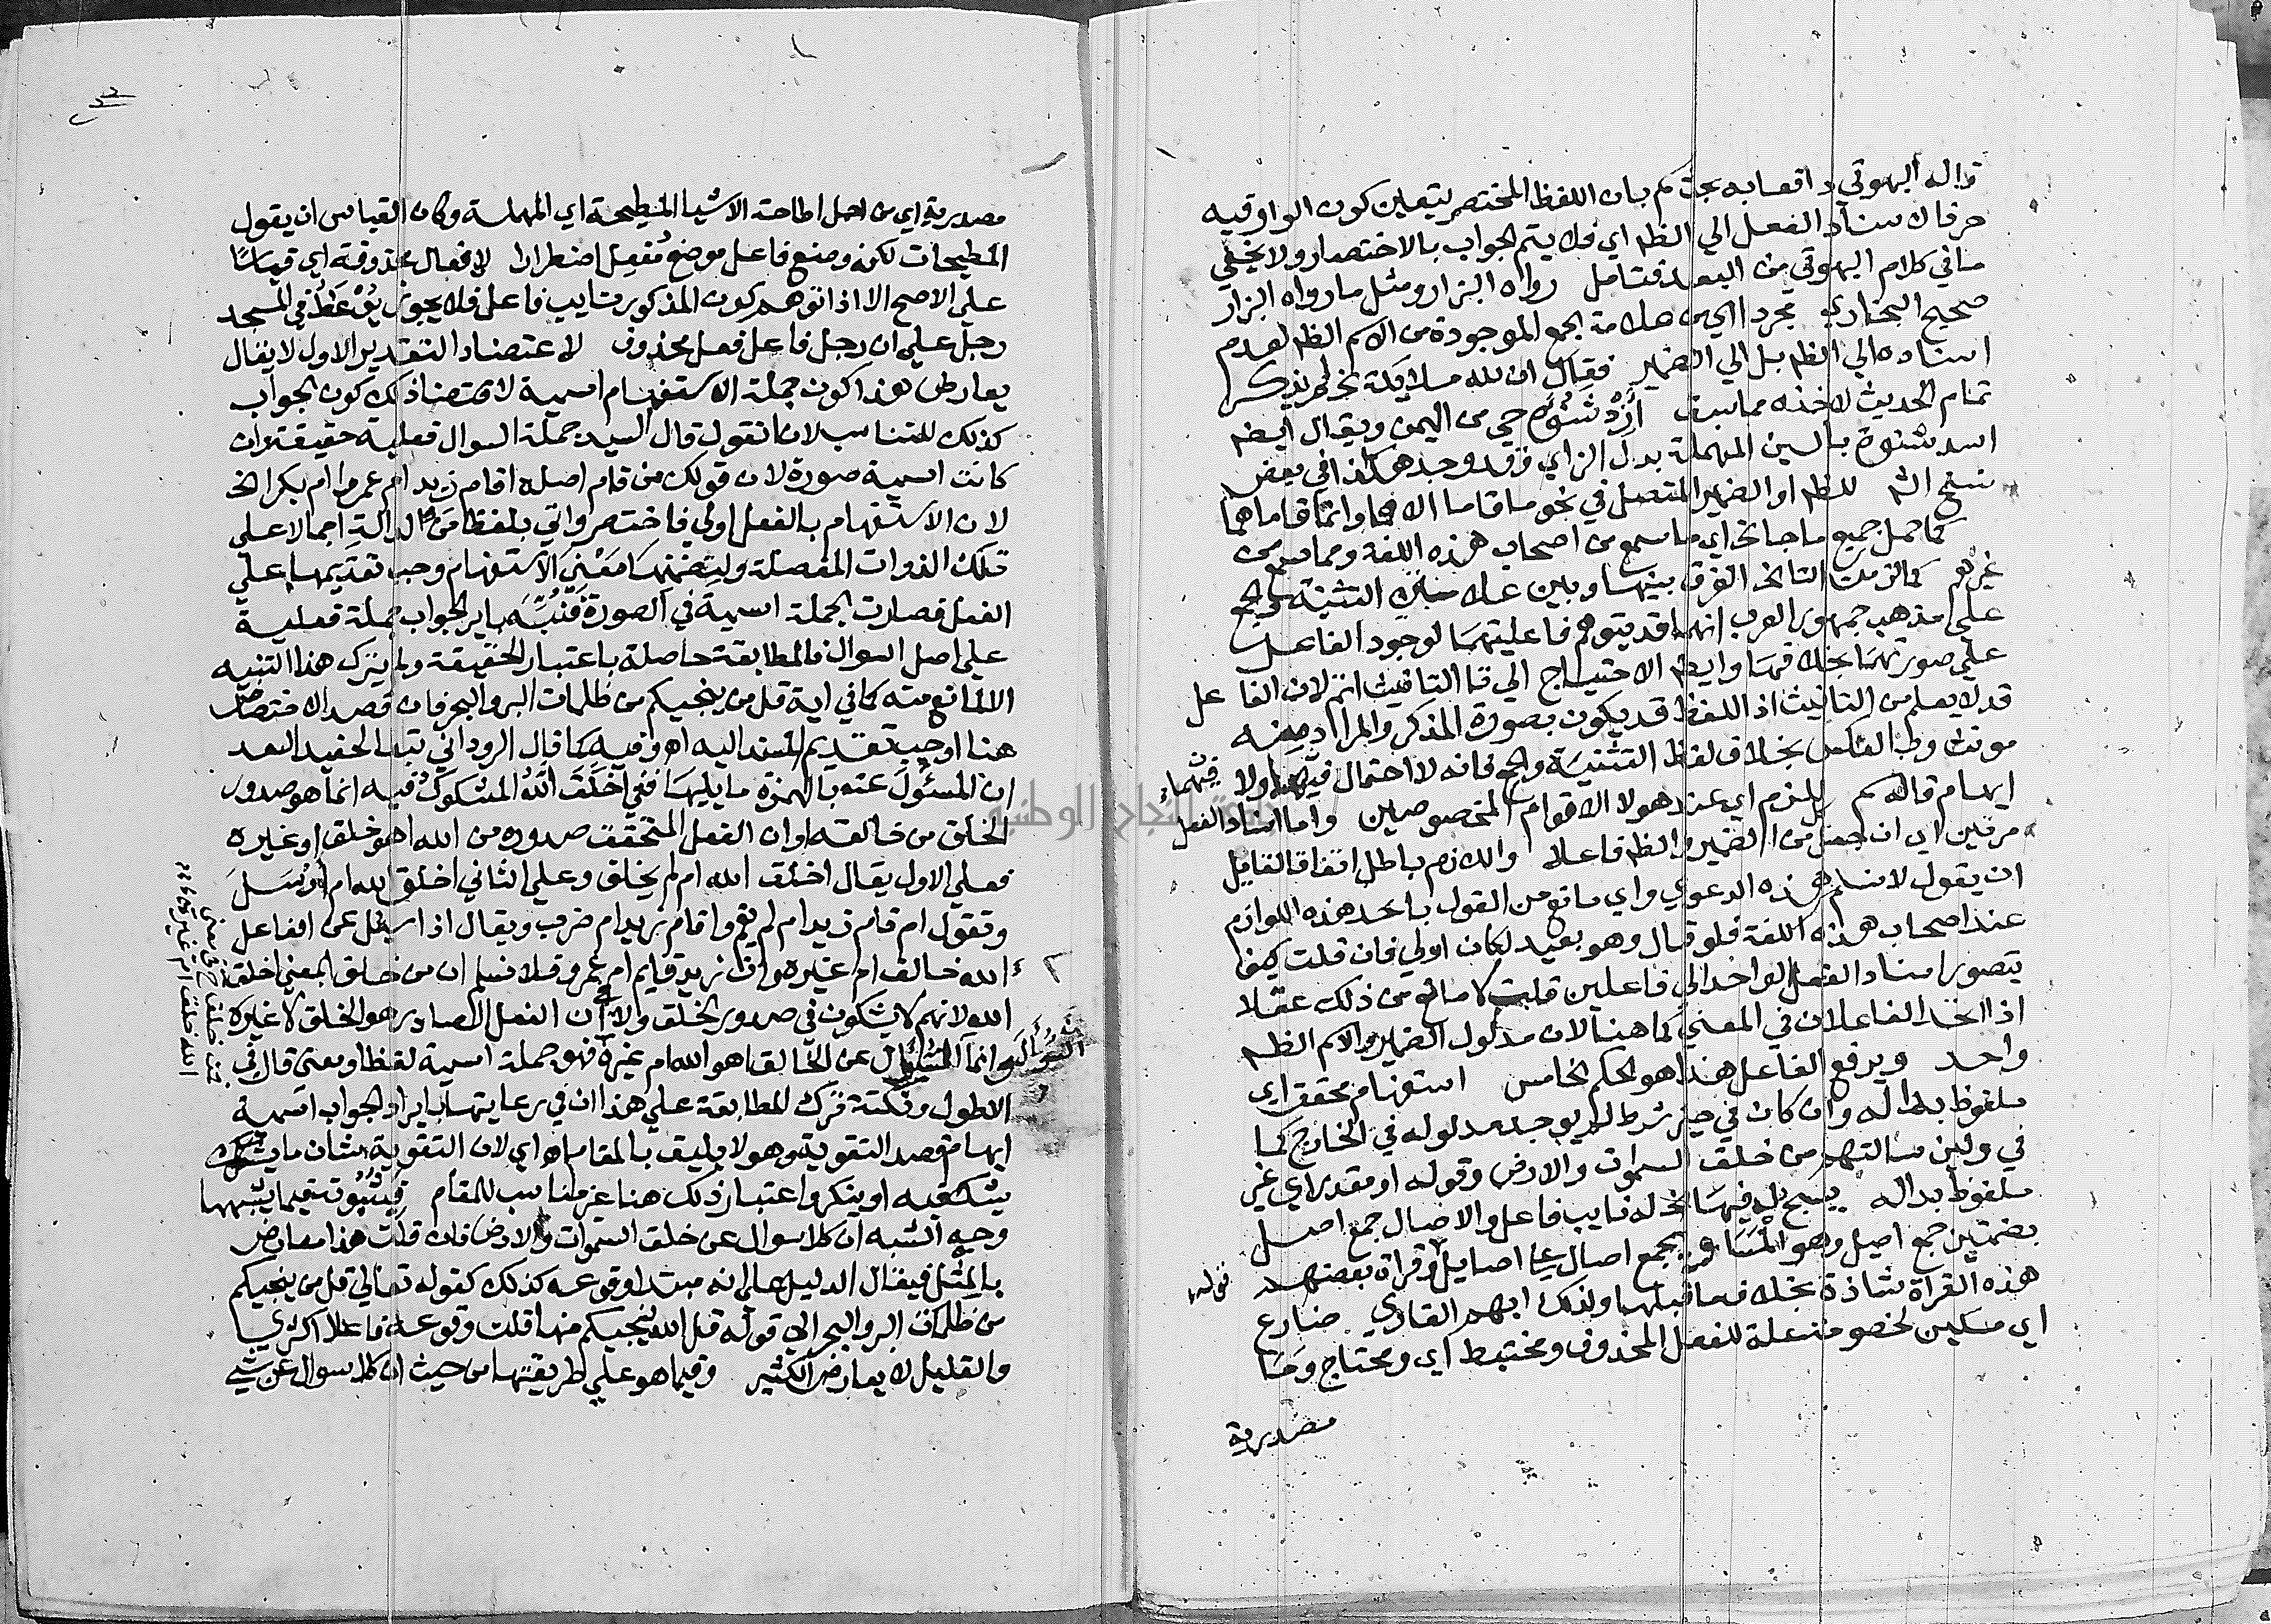 قاله البهوتي دافعا به بحث سم بان اللفظ المختصر يتعين كون الواو فيه
حرفا لاسناد الفعل الي الظم اي فلا يتم الجواب بالاختصار ولا يخفي
ما في كلام البهوتي من البعد فتامل رواه البزار ومثل ما رواه البزار
صحيح البخاري مجردا اي من علامة الجمع الموجودة من الاسم الظم لعدم
اسناده الي الظم بل الي الضمير فقال ان لله ملايكة الخ لم يذكر
تمام الحديث لاخذه مما سبق أزد شنوءة حي من اليمن ويقال ايضم
اسد شنوة بالسين المهملة بدل الزاي وقد وجد هكذا في بعض
نسخ الشم للظم او الضمير المتصل في نحو ما قاما الا هما وانما قاما هما
كما حمل جميع ما جا الخ اي ما سمع من اصحاب هذه اللغة ومما سمع من
غيرهم كما لزمت التا الخ الفرق بينها وبين علامتي التثنية والجمع
علي مذهب جمهور العرب انهما قد يتوهم فاعليتهما لوجود الفاعل
علي صورتهما بخلافها وايضم الاحتياج الي تا التانيث اتم لان الفاعل
قد لا يعلم من التانيث اذ اللفظ قد يكون بصورة المذكر والمراد منه
مونث وبالعكس بخلاف لفظ التثنية والجمع فانه لا احتمال فيهما ولا
ايهام قاله سم يلزم اي عند هولا الاقوام المخصوصين واما اسناد الفعل
مرتين اي ان جعل من الضمير والظم فاعلا واللازم باطل اتفاقا لقايل
ان يقول لا نسلم هذه الدعوي واي مانع من القول باحد هذه اللوازم
عند اصحاب هذه اللغة فلو قال وهو بعيد لكان اولي فان قلت كيف
يتصور اسناد الفعل الواحد الي فاعلين قلت لا مانع من ذلك عقلا
اذا اتحد الفاعلان في المعني كما هنا لان مدلول الضمير والاسم الظم
واحد ويرفع الفاعل هذا هو الحكم الخامس استفهام محقق اي
ملفوظ بداله وان كان في حيز شرط لم يوجد مدلوله في الخارج كما
في ولين سالتهم من خلق السموات والارض وقوله او مقدر اي غير
ملفوظ بداله يسبح له فيها الخ له نايب فاعل والاصال جمع اصل
بضمتين جمع اصيل وهو المسا ويجمع اصال علي اصايل وقراة بعضهم
هذه القراة شاذة بخلاف ما قبلها ولذلك ابهم القاري ضارع
اي مسكين لخصومة علة للفعل المحذوف ومختبط اي ومحتاج ومما
مصدرية
مصدرية اي من اجل اطاحة الاشيا المطيحة اي المهلكة وكان القياس ان يقول
المطيحات لكنه وضع فاعل موضع مُفعِل اضطرارا لافعال محذوفة اي قياسًا
علي الاصح الا اذا توهم كون المذكور نايب فاعل فلا يجوز يُوْعَظُ في المسجد
رجل علي ان رجل فاعل فعل محذوف لاعتضاد التقدير الاول لا يقال
يعارض هذا كون جملة الاستفهام اسمية لاقتضا ذلك كون الجواب
كذلك للتناسب لانا نقول قال السيد جملة السوال فعلية حقيقة وان
كانت اسمية صورة لان قولك من قام اصله اقام زيد ام عمرو ام بكر الخ
لان الاستفهام بالفعل اولي فاختصر واتي بلفظ مَن الدالة اجمالا علي
تلك الذوات المفصلة ولتضمنها معني الاستفهام وجب تقديمها علي
الفعل فصارت الجملة اسمية في الصورة فنُبِّه بايراد الجواب جملة فعلية
علي اصل السوال فالمطابقة حاصلة باعتبار الحقيقة ولم يترك هذا التنبيه
الا لمانع منه كما في اية قل من ينجيكم من ظلمات البر والبحر فان قصد الاختصاص
هنا اوجب تقديم المسند اليه اهـ وفيه كما قال الروداني تبعا لحفيد السعد
ان المسئول عنه بالهمزة ما يليها ففي اخلق الله المشكوك فيه انما هو صدور
الخلق من خالقه او ان الفعل المتحقق صدوره من الله اهو خلق او غيره
فعلي الاول يقال اخلق الله ام لم يخلق وعلي الثاني اخلق الله ام ارسل
وتقول اقام زيد ام لم يقم واقام زيد ام ضرب ويقال اذا سيل عن الفاعل
االله خالق ام غيره وازيد قايم ام عمرو فلا نسلم ان من خلق بمعني اخلق
الله لانهم لا يشكون في صدور الخلق ولا في ان الفعل الصادر هو الخلق لا غيره
وانما السؤال عن الخالق اهو الله ام غيره فهو جملة اسمية لفظا ومعني قال في
الاطول ونكتة ترك المطابقة علي هذا ان في رعايتها بايراد الجواب اسمية
ايهام قصد التقوية وهو لا يليق بالمقام اهـ اي لان التقوية شان ما يشك
يشك فيه او ينكر واعتبار ذلك هنا غير مناسب للمقام فيثبوت فيما يشبهها
وجه الشبه ان كلا سوال عن خلق السموات والارض فان قلت هذا معارض
بالمثل فيقال الدليل علي انه مبتدا وقوعه كذلك كقوله تعالي قل من ينجيكم
من ظلمات البر والبحر الي قوله قل الله ينجيكم منها قلت وقوعه فاعلا اكثري
والقليل لا يعارض الكثير وفيما هو علي طريقتها من حيث ان كلا سوال عن شي